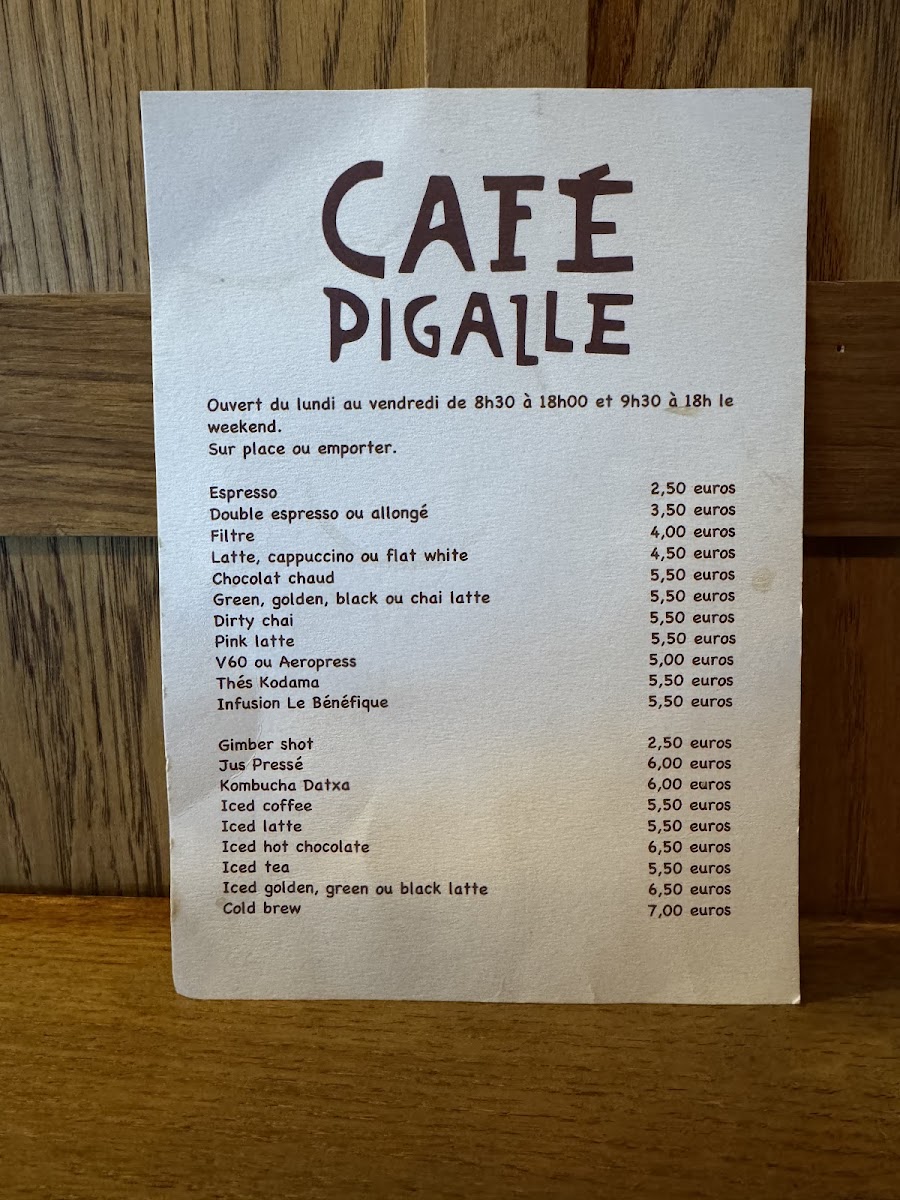 CAFÉ
PIGALLE
Ouvert du lundi au vendredi de 8h30 à 18h00 et 9h30 à 18h le
weekend.
Sur place ou emporter.
Espresso 2,50 euros
Double espresso ou allongé 3,50 euros
Filtre 4,00 euros
Latte, cappuccino ou flat white 4,50 euros
Chocolat chaud 5,50 euros
Green, golden, black ou chai latte 5,50 euros
Dirty chai 5,50 euros
Pink latte 5,50 euros
V60 ou Aeropress 5,00 euros
Thés Kodama 5,50 euros
Infusion Le Bénéfique 5,50 euros
Gimber shot 2,50 euros
Jus Pressé 6,00 euros
Kombucha Datxa 6,00 euros
Iced coffee 5,50 euros
Iced latte 5,50 euros
Iced hot chocolate 6,50 euros
Iced tea 5,50 euros
Iced golden, green ou black latte 6,50 euros
Cold brew 7,00 euros